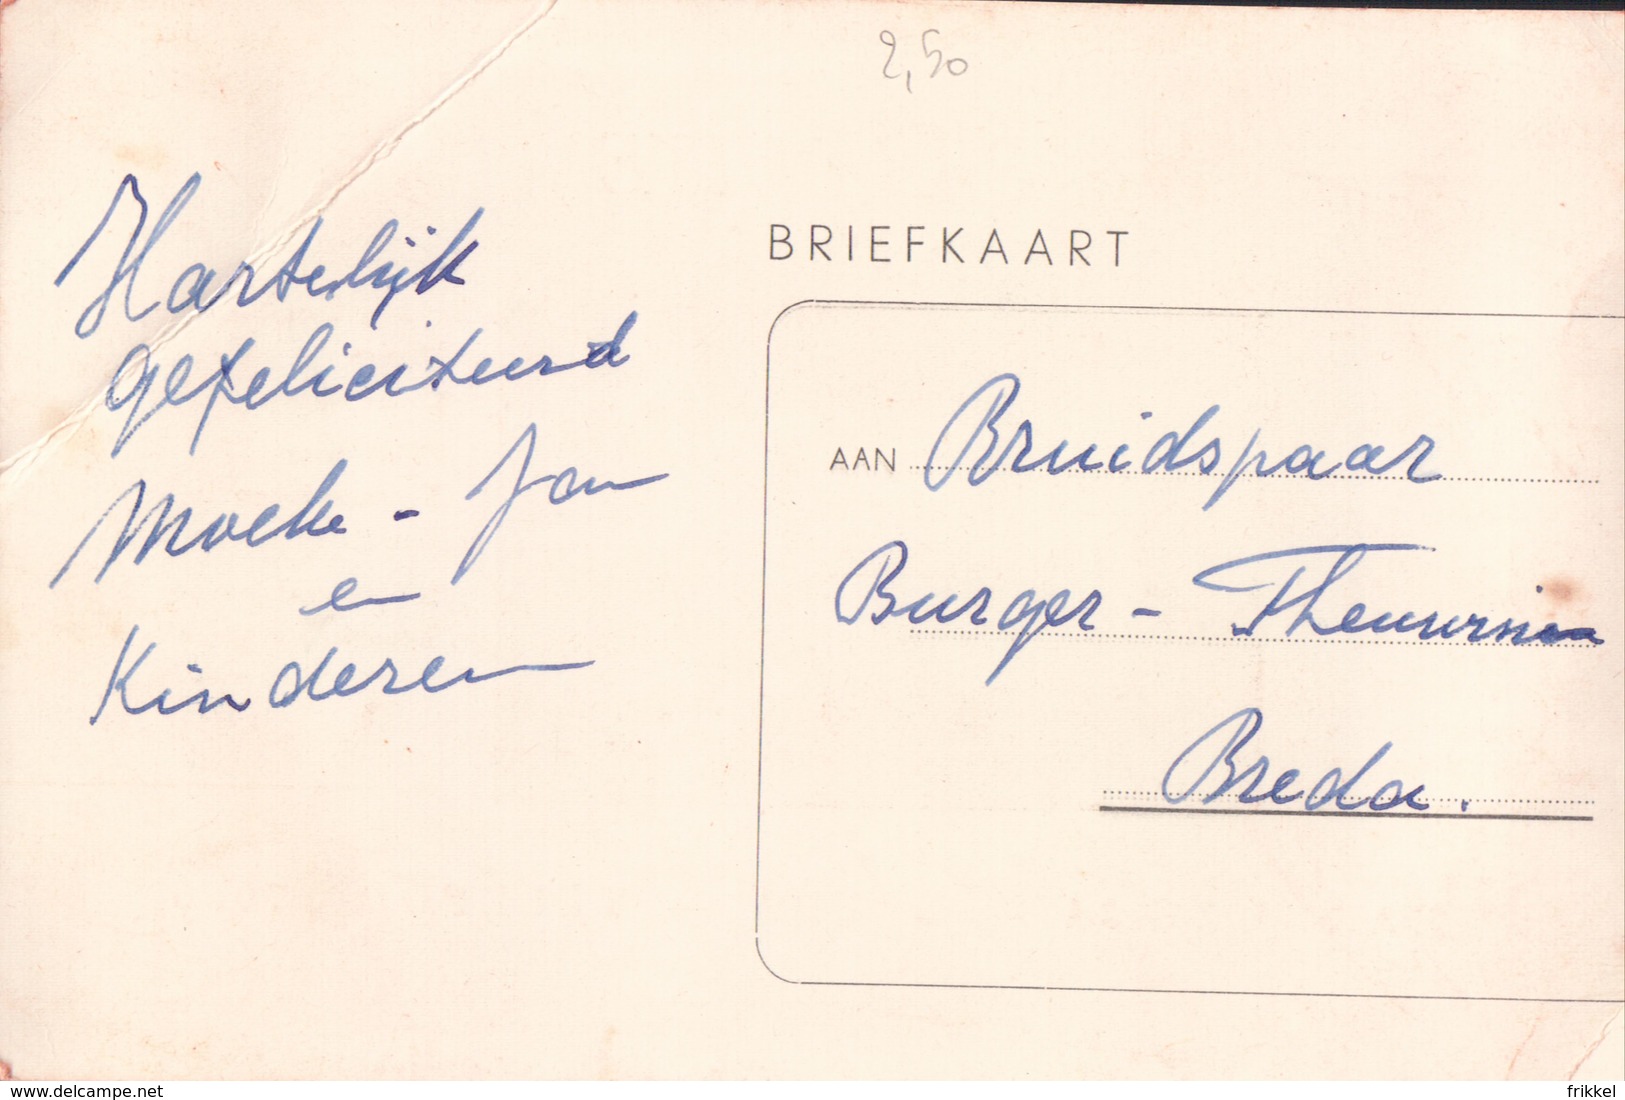 2,50
Hartelijk
gefeliciteerd
Moeke - Jan
en
Kinderen
BRIEFKAART
AAN Bruidspaar
Burger -
Breda.
delcampe.net
frikkel